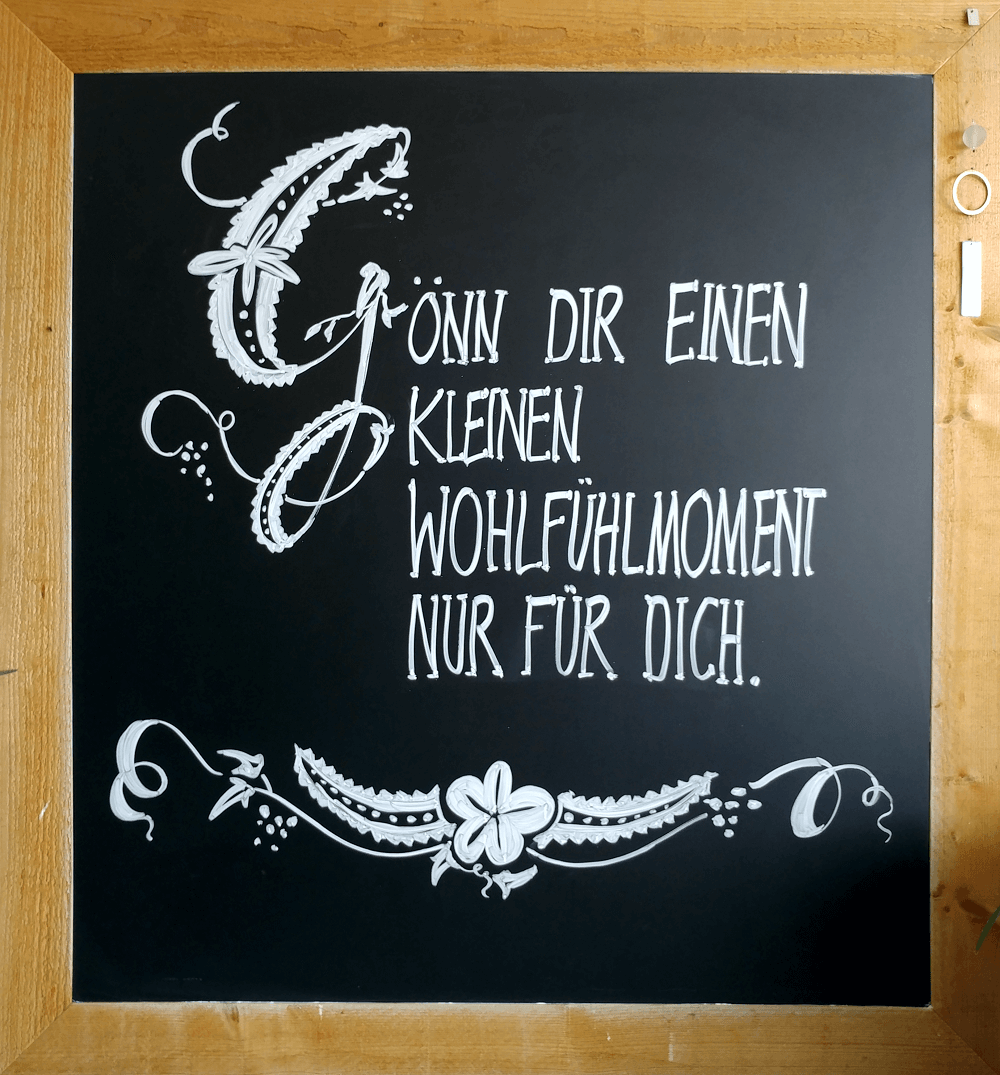 GÖNN DIR EINEN
KLEINEN
WOHLFÜHLMOMENT
NUR FÜR DICH.